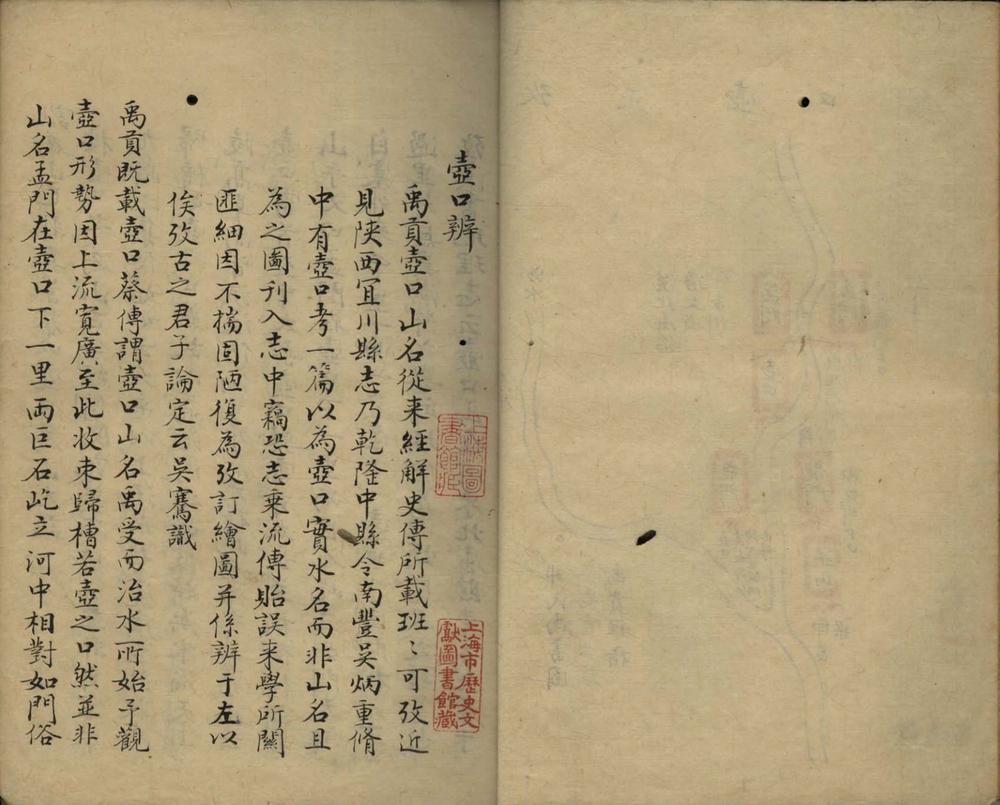 壺口辨
禹貢壺口山名從来經解史傳所載班〻可攷近
見陕西宜川縣志乃乾隆中縣令南豐吳炳重脩
中有壺口考一篇以為壺口實水名而非山名且
為之圖刊入志中竊恐志乘流傳貽誤来學所關
匪細因不揣固陋復為攷訂繪圖并係辨于左以
俟攷古之君子論定云吳騫識
禹貢既載壺口蔡傳謂壺口山名禹受而治水所始予觀
壺口形勢因上流寬廣至此收束歸槽若壺之口然並非
山名孟門在壺口下一里兩巨石屹立河中相對如門俗
上海圖
書館藏
上海市歷史文
獻圖書館藏